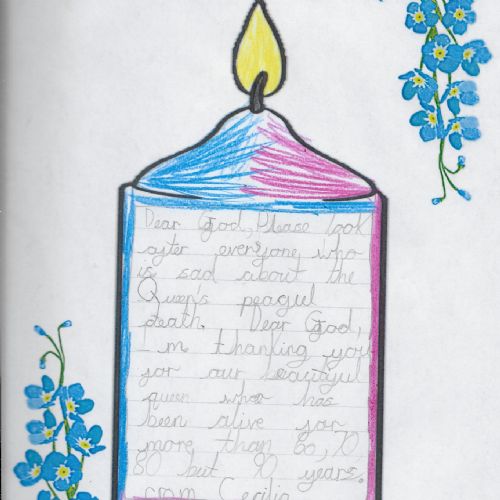 Dear God, Please look
after everyone who
is sad about the
Queen's peagul
death. Dear God,
I'm thanking you
for our beautiful
queen who has
been alive for
more than 60, 70
80 but 90 years.
from Cecilia